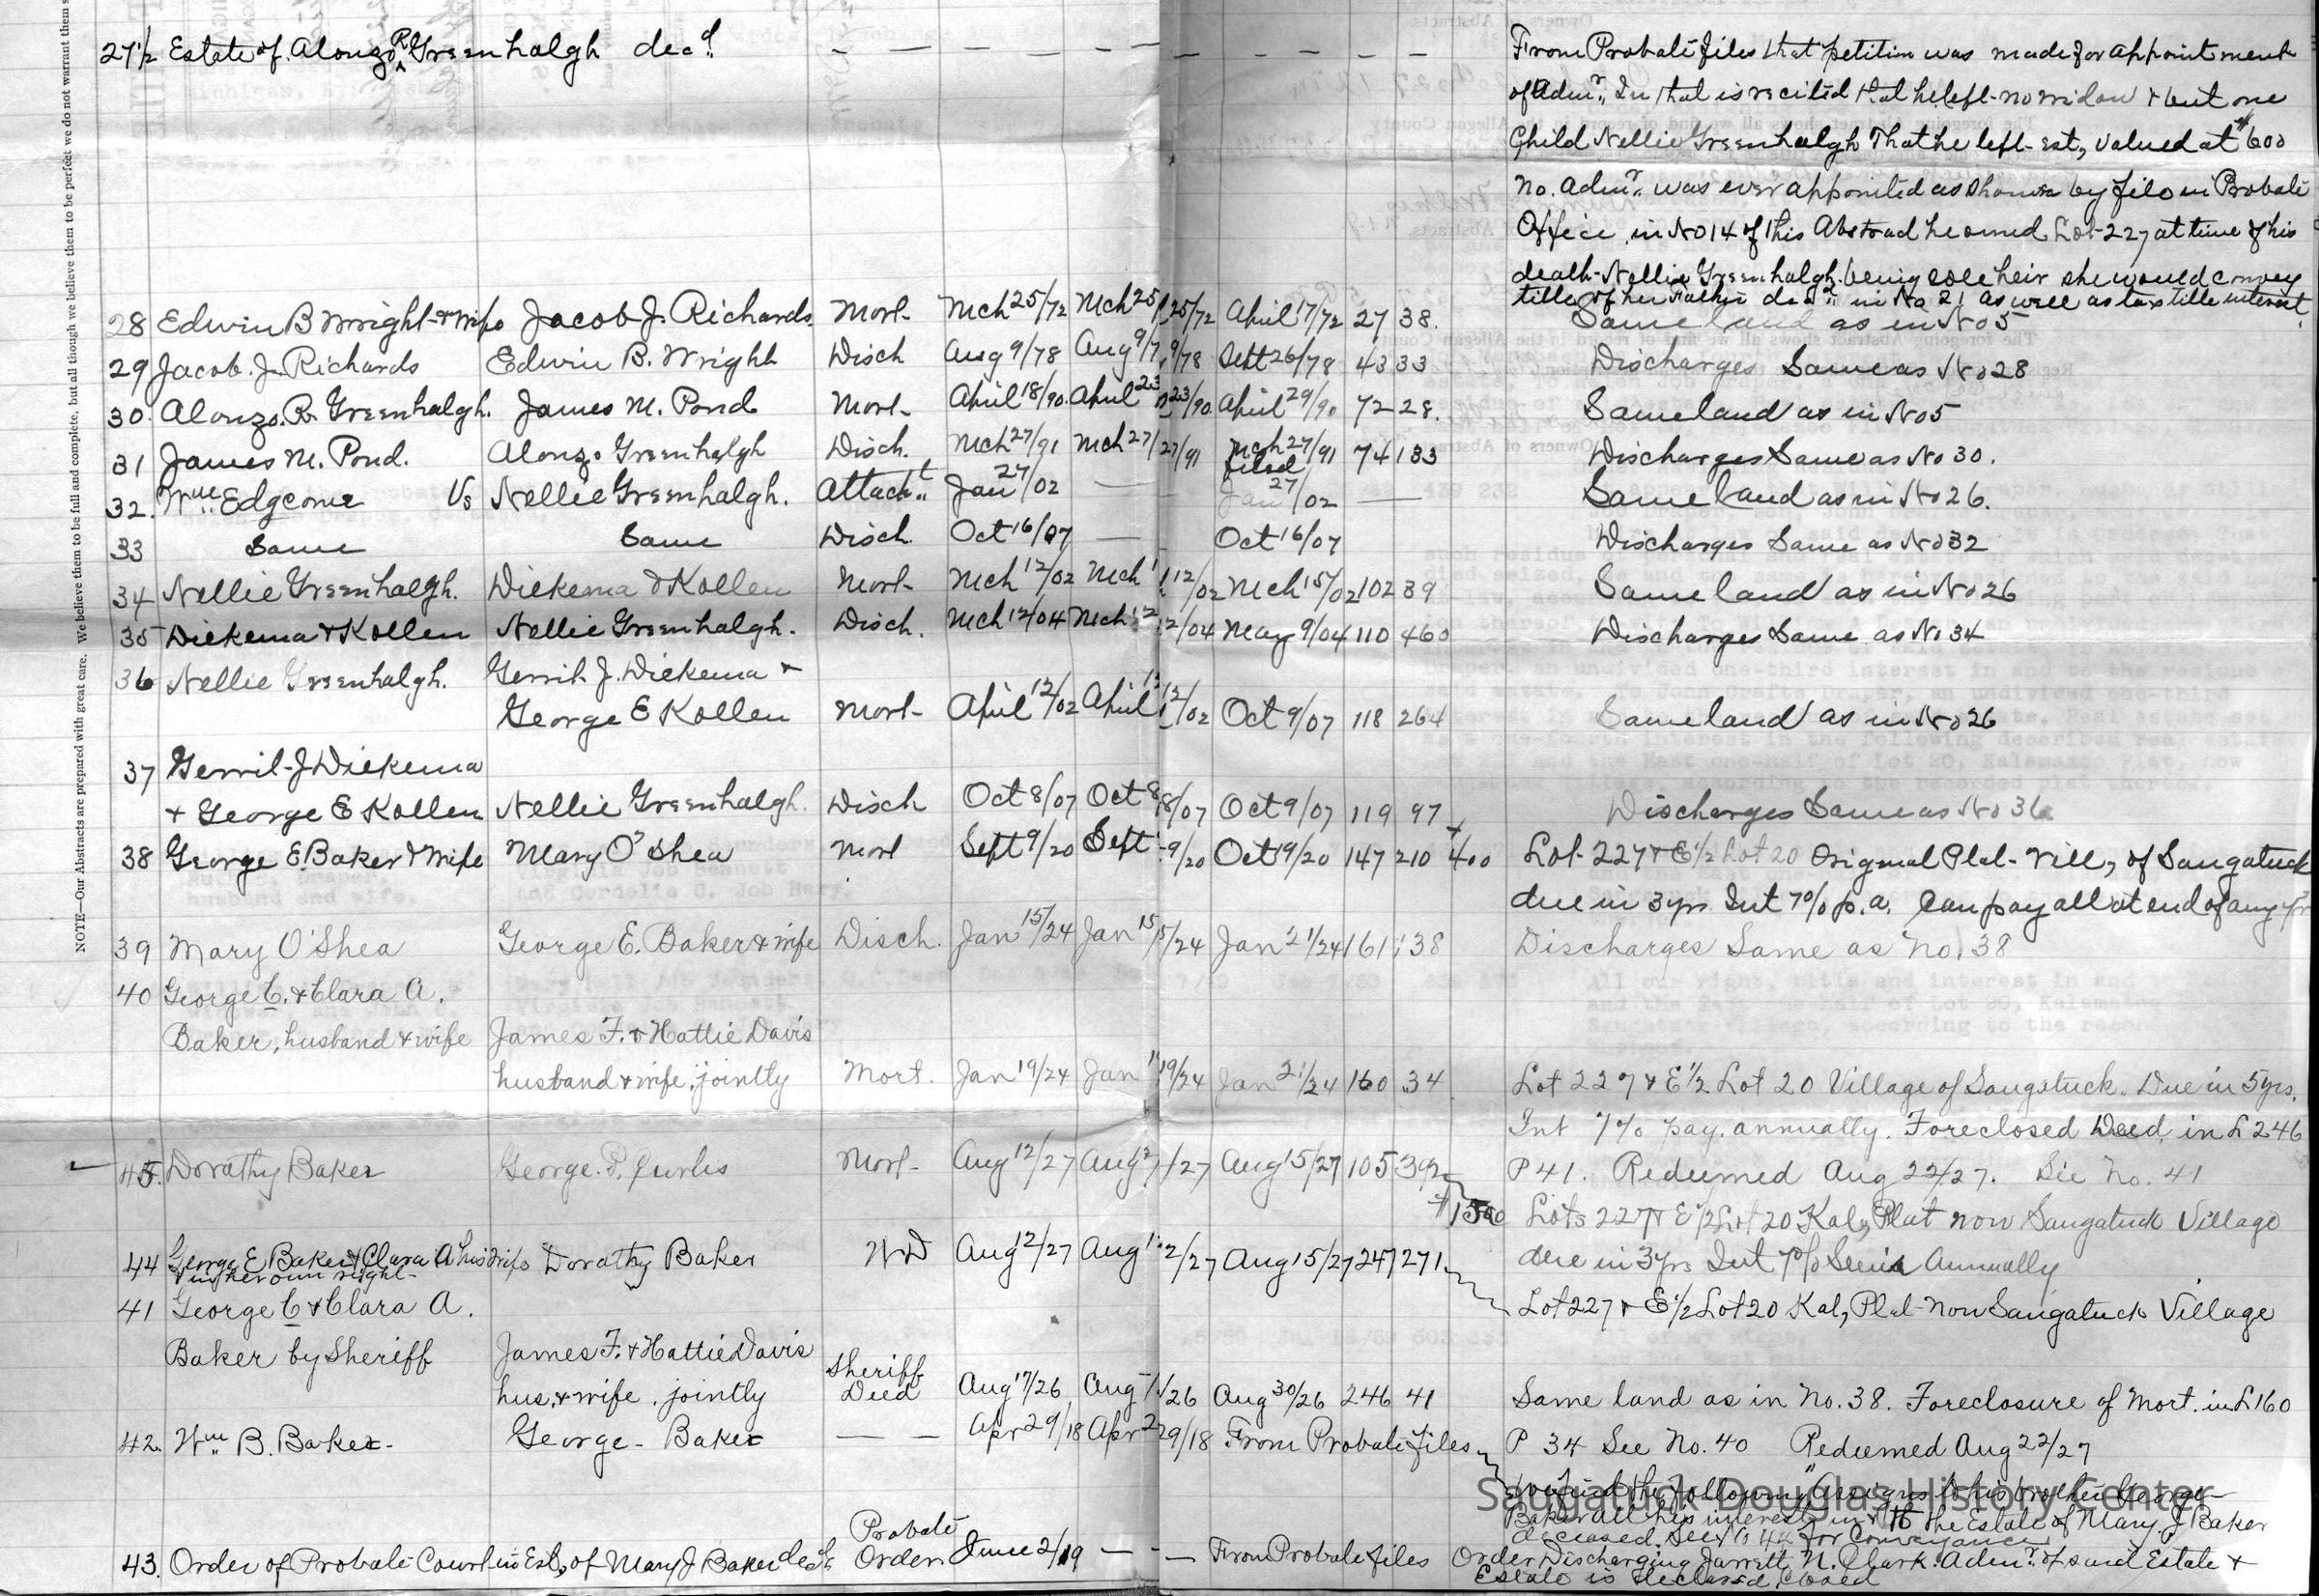 NOTE—Our Abstracts are prepared with great care. We believe them to be full and complete, but all though we believe them to be perfect we do not warrant them
27½ Estate of Alonzo R. Greenhalgh dec'd. — — — — — — — — — From Probate files that petition was made for appointment
of Adm'r. In that is recited that he left no widow & but one
Child Nellie Greenhalgh That he left est, valued at $600
No. Adm'r. was ever appointed as shown by file in Probate
Office in No 14 of this Abstract he owned Lot 227 at time of his
death Nellie Greenhalgh being sole heir she would convey
title of her Father dec'd in No 21 as well as tax title interest.
28 Edwin B Wright & wife Jacob J. Richards Mort. Mch 25/72 Mch 25 25/72 April 17/72 27 38. Same land as in No 5
29 Jacob J. Richards Edwin B. Wright Disch Aug 9/78 Aug 9/7 9/78 Sept 26/78 43 33 Discharges Same as No 28
30. Alonzo. R. Greenhalgh. James M. Pond Mort. April 18/90. April 23 23/90. April 29/90 72 28. Same land as in No 5
31 James M. Pond. Alonzo Greenhalgh Disch. Mch 27/91 Mch 27/ 27/91 Mch 27/91 74 133 Discharges Same as No 30.
filed
32. Wm. Edgcome Vs Nellie Greenhalgh. Attach't Jan 27/02 — Jan 27/02 — Same land as in No 26.
33 Same Same Disch. Oct 16/07 — Oct 16/07 Discharges Same as No 32
34 Nellie Greenhalgh. Diekema & Kollen Mort. Mch 12/02 Mch 1 12/02 Mch 15/02 102 39 Same land as in No 26
35 Diekema & Kollen Nellie Greenhalgh. Disch. Mch 12/04 Mch 12 2/04 May 9/04 110 460 Discharges Same as No 34
36 Nellie Greenhalgh. Gerrit J. Diekema &
George E Kollen Mort. April 12/02 April 12 12/02 Oct 9/07 118 264 Same land as in No 26
37 Gerrit J Diekema
& George E Kollen Nellie Greenhalgh. Disch Oct 8/07 Oct 8 8/07 Oct 9/07 119 97 Discharges Same as No 36
38 George E. Baker & Wife Mary O'Shea Mort Sept 9/20 Sept 9/20 Oct 9/20 147 210 400 Lot 227 & E½ Lot 20 Original Plat Vill, of Saugatuck
due in 3 yrs Int 7% p.a. Can pay all at end of any yr
39 Mary O'Shea George E. Baker & wife Disch. Jan 15/24 Jan 15 5/24 Jan 21/24 161 138 Discharges Same as No. 38
40 George C. & Clara A.
Baker, husband & wife James F. & Hattie Davis
husband & wife, jointly Mort. Jan 19/24 Jan 1 19/24 Jan 21/24 160 34 Lot 227 & E½ Lot 20 Village of Saugatuck. Due in 5 yrs.
Int 7% pay. annually. Foreclosed Deed in L 246
P 41. Redeemed Aug 22/27. See No. 41
45. Dorathy Baker George. P. Mort. Aug 12/27 Aug /27 Aug 15/27 105 392
$1500 Lots 227 & E½ Lot 20 Kal, Plat now Saugatuck Village
due in 3 yrs Int 7% Semi Annually
44 George E Baker & Clara A his wife Dorathy Baker WD Aug 12/27 Aug 1 2/27 Aug 15/27 247 271
& in her own right Lot 227 & E½ Lot 20 Kal, Plat now Saugatuck Village
41 George C & Clara A.
Baker by Sheriff James F. & Hattie Davis
hus. & wife, jointly Sheriff Deed Aug 17/26 Aug 1 /26 Aug 30/26 246 41 Same land as in No. 38. Foreclosure of Mort. in L 160
P 34 See No. 40 Redeemed Aug 22/27
42. Wm. B. Baker. George Baker — — Apr 29/18 Apr 2 29/18 From Probate files
the following "Assigns to his brother George
Baker all his interest in & to the Estate of Mary J Baker
deceased. See No 44 for Conveyance
43. Order of Probate Court in Est, of Mary J Baker dec'd. Probate Order June 2/19 — — — From Probate files Order Discharging Jarrett N. Clark. Adm'r. of said Estate &
Estate is declared closed
Saugatuck-Douglas History Center